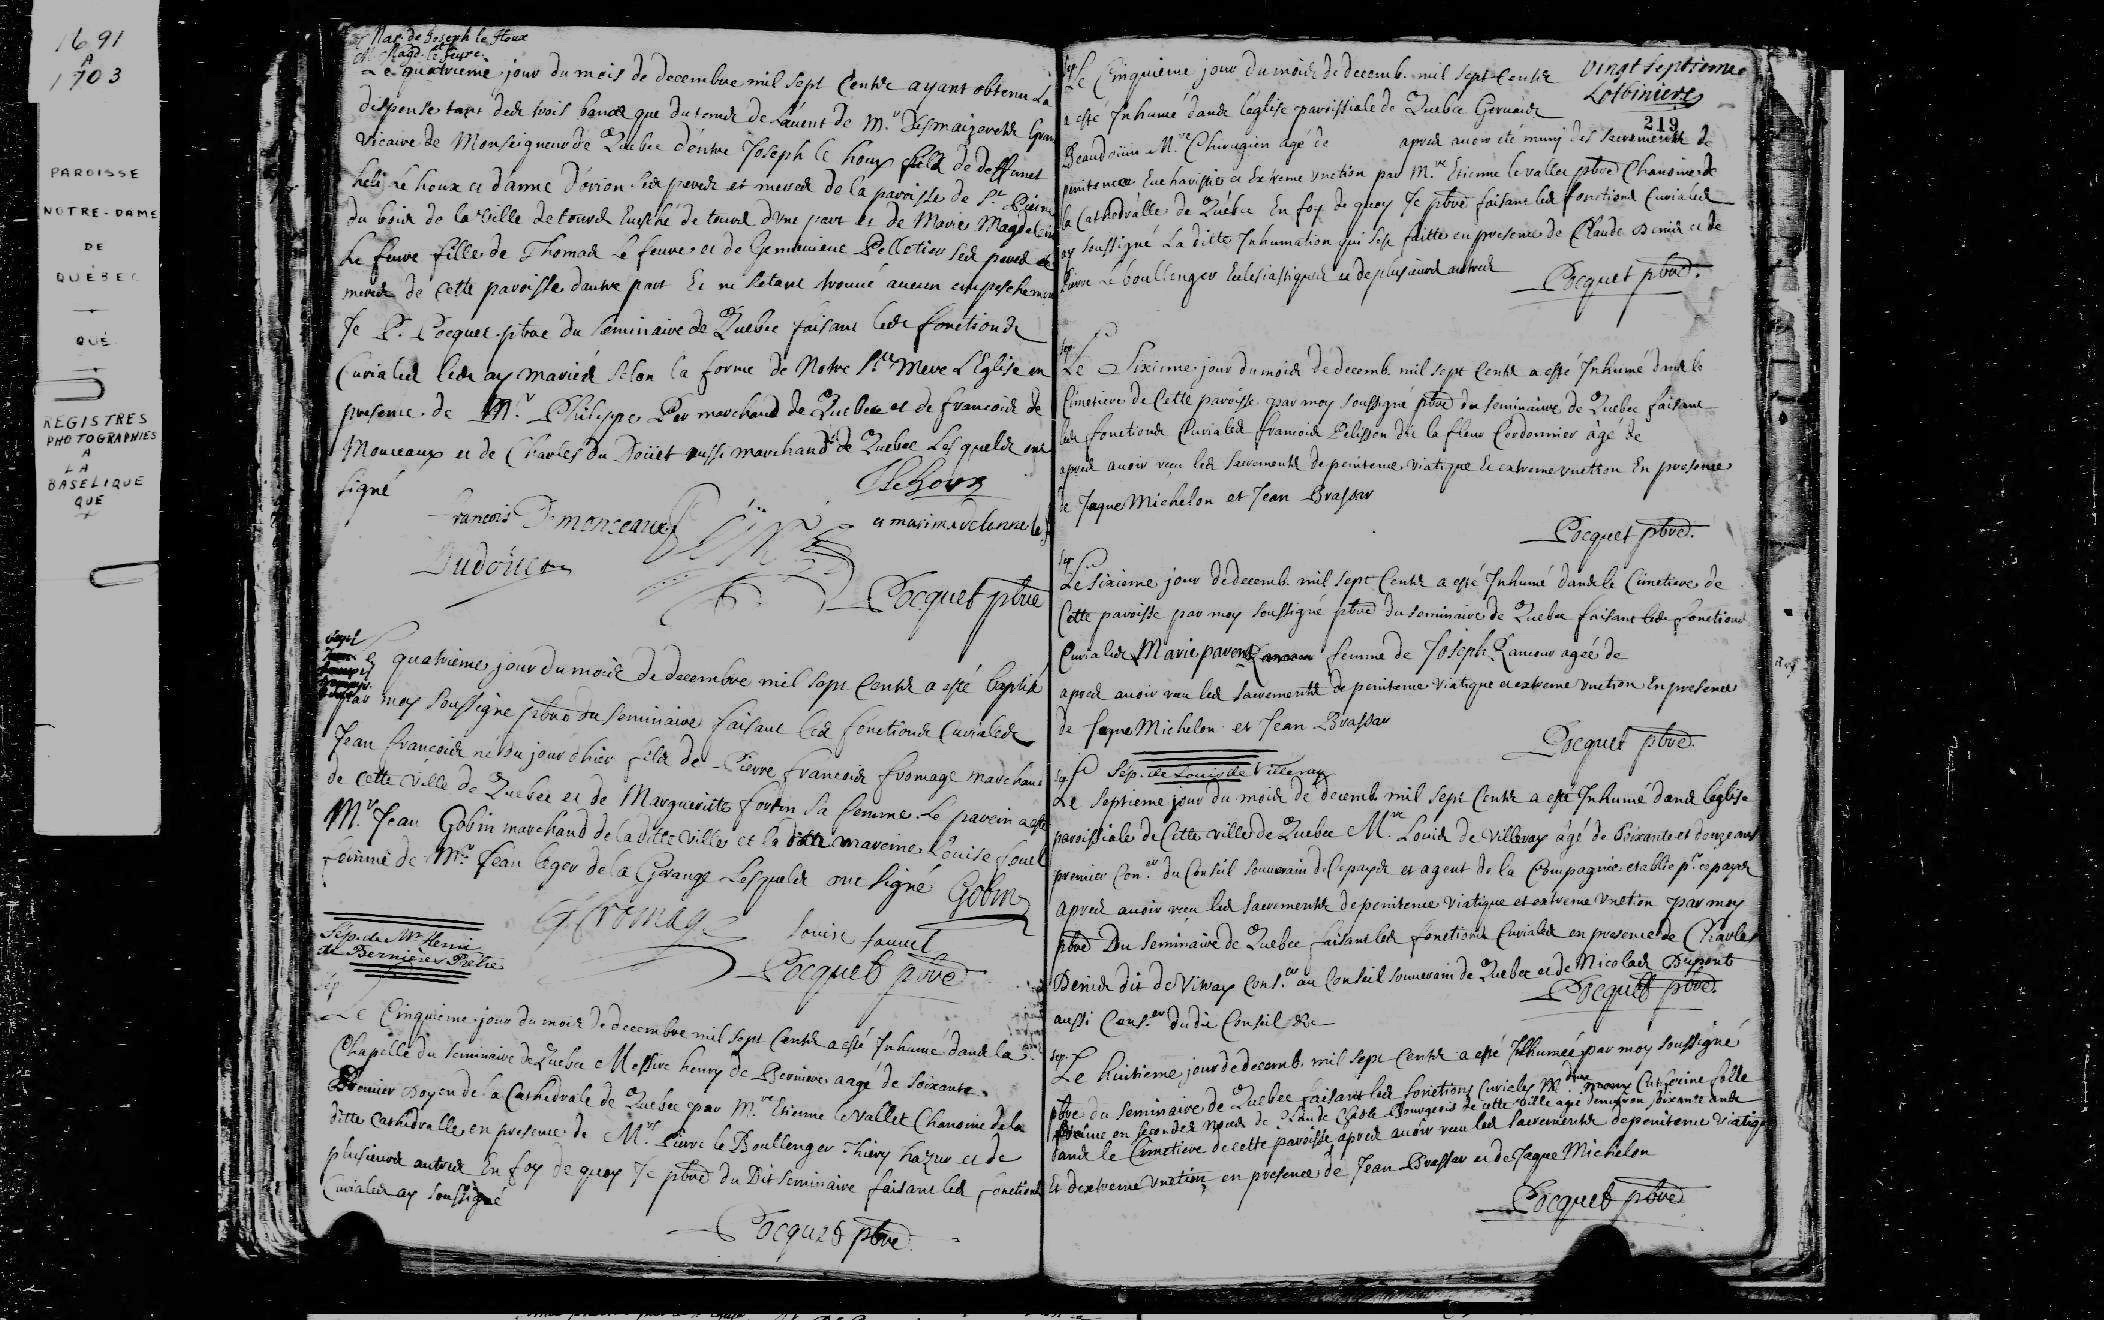 1691
A
1703
PAROISSE
NOTRE-DAME
DE
QUÉBEC
QUÉ.
REGISTRES
PHOTOGRAPHIES
A
LA
BASELIQUE
QUE
Mar. de Joseph le Houx
et Magd. le feure.
Le quatrieme jour du mois de decembre mil sept Cents ayant obtenu La
dispense tant des trois bancs que du temps de Lavent de M.r Desmaizerets Gran
vicaire de Monseigneur de Quebec d'entre Joseph le houx fils de deffunct
heli le houx et danne Doiron ses peres et meres de la paroisse de St Pierre
du bois de la ville de tours Eveché de tours d'une part et de Marie Magdelein
le feuvre fille de Thomas le feuvre et de Genevieve Pelletier ses peres et
meres de cette paroisse dautre part Et ne sétant trouvé aucun empeschement
Je P. Pocquet ptbre du seminaire de Quebec faisant les fonctions
Curiales les ay mariés selon la forme de Notre Ste Mere L'Eglise en
presence de M.r Philippe Pey marchand de Quebec et de francois de
Monceaux et de Charles du Doüet aussi marchands de Quebec Lesquels ont
signé
JleHoux
francois De monceaux
et mari madelenne le f
Dudoüet
Pocquet ptbre
bapt
Le quatrieme jour du mois de decembre mil sept Cents a esté baptisé
par moy soussigné ptbre du seminaire faisant les fonctions curiales
Jean francois né du jour d'hier fils de Pierre francois fromage marchant
de cette ville de Quebec et de Marguerite fortin sa femme. Le parein a esté
M.r Jean Gobin marchand de la ditte ville et la ditte mareine Louise fouel
femme de Mr Jean leger de la Grange Lesquels ont signé Gobin
fromage
Louise fauuel
Pocquet ptbre
Sép. de Mre Henri
de Bernieres Prêtre
sep
Le Cinquieme jour du mois de decembre mil sept Cents a esté Inhumé dans la
Chapelle du seminaire de Quebec Messire henry de Bernieres aagé de soixante
Premier Doyen de la Cathedrale de Quebec par M.re Etienne le vallet Chanoine de la
ditte cathedralle en presence de M.rs Pierre le Boullenger Thiery hazur et de
plusieurs autres En foy de quoy Je ptbre du Dit seminaire faisant les fonctions
Curiales ay soussigné
Pocquet ptbre
vingt septieme
Lotbiniere
219
sep
Le Cinquieme jour du mois de decemb. mil sept Cents
a esté Inhumé dans l'eglise paroissiale de Quebec Gervais
Beaudoüin M.re Chirugien agé de apres avoir eté muni des sacrements de
penitence Eucharistie et Extreme unction par M.re Etienne le vallet ptbre Chanoine de
la Cathedralle de Québec En foy de quoy Je ptbre faisant les fonctions Curiales
ay soussigné La ditte Inhumation qui sest faitte en presence de Claude Denis et de
Pierre Le boullenger Eclesiastiques et de plusieurs autres
Pocquet ptbre.
sep.
Le Sixieme jour du mois de decemb. mil sept Cents a esté Inhumé dans le
Cimetiere de Cette paroisse par moy soussigné ptbre du seminaire de Quebec faisant
les fonctions Curiales francois Pelisson dit la fleur Cordonnier âgé de
apres avoir reçu les sacrements de penitence viatique et extreme unction En presence
de Jaque Michelon et Jean Brassar
Pocquet ptbre.
sep.
Le sixieme jour de decemb. mil sept Cents a esté Inhumé dans le Cimetiere de
Cette paroisse par moy soussigné ptbre du seminaire de Quebec faisant les fonctions
Curiales Marie parent femme de Joseph Rancour agée de
apres avoir reçu les sacrements de penitence viatique et extreme unction En presence
de Jaque Michelon et Jean Brassar
Pocquet ptbre.
Sép. de Louis de Villeray
sep.
Le septieme jour du mois de decemb. mil sept Cents a esté Inhumé dans l'eglise
paroissiale de Cette ville de Quebec M.re Louis de Villeray âgé de soixante et douze ans
premier Con.er du Conseil souverain de ce pays et agent de la Compagnie etablie pr ce pays
apres avoir reçu les sacrements de penitence viatique et extreme unction par moy
ptbre Du seminaire de Quebec faisant les fonctions Curiales en presence de Charles
Denis dit de Vitray Cons.er au Conseil souverain de Quebec et de Nicolas Dupont
Pocquet ptbre.
aussi Cons.er du dit Conseil &c
sep.
Le huitieme jour de decemb. mil sept Cents a esté Inhumée par moy soussigné
ptbre du seminaire de Quebec faisant les fonctions Curiales Catherine fille
femme en secondes noces de Bourgeois de cette ville agé denviron soixante ans
dans le Cimetiere de cette paroisse apres avoir reçu les sacrements de penitence viatique
et dextreme unction en presence de Jean Brassar et de Jaque Michelon
Pocquet ptbre.